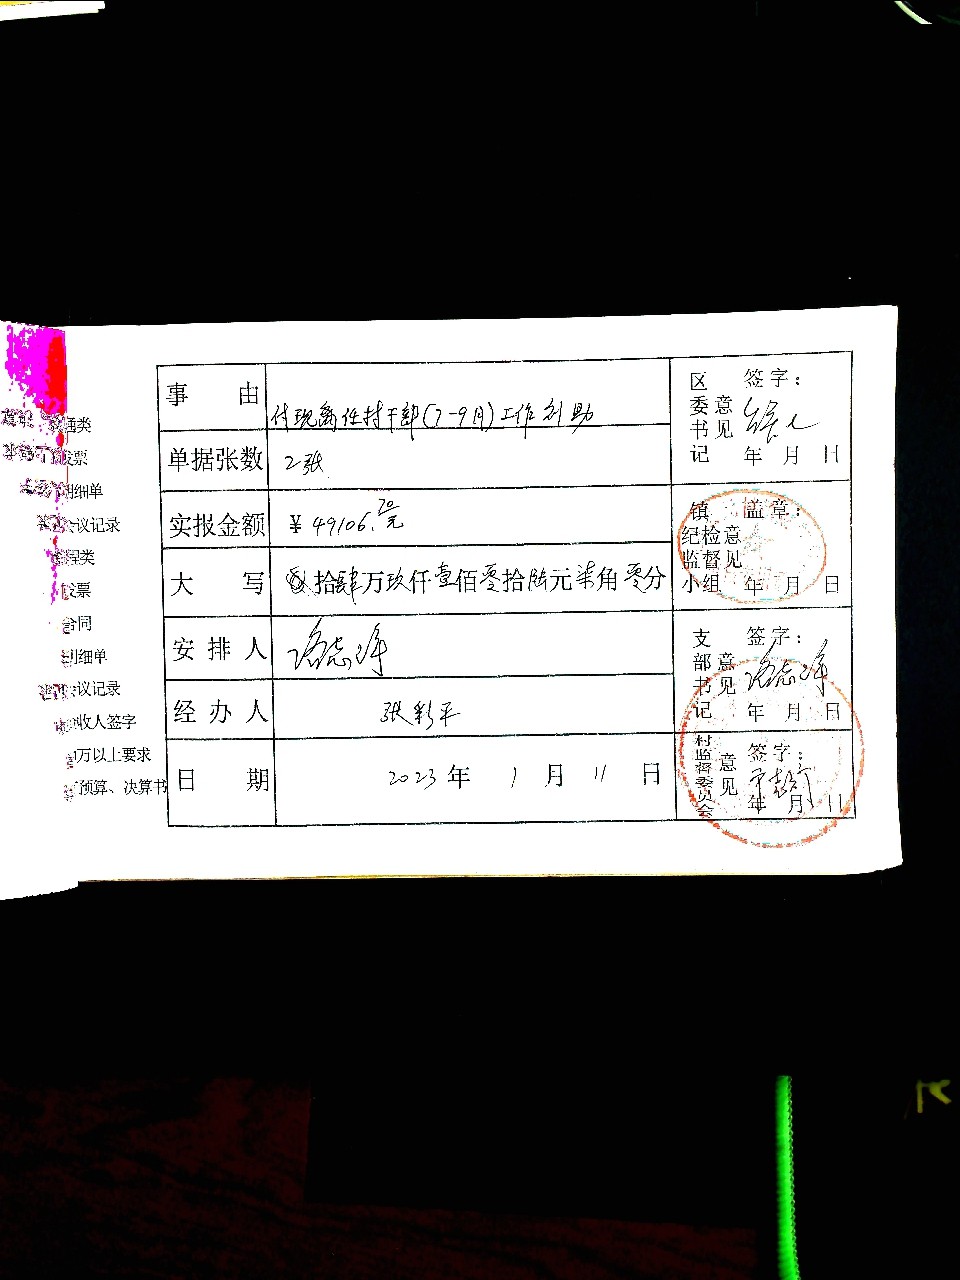 事 由 付现离任村干部(7-9月)工作补助
单据张数 2张
实报金额 ¥49106.70元
大 写 拾肆万玖仟壹佰零拾陆元柒角零分
安 排 人
经 办 人 张彩平
日 期 2023年 1月 11日
区委书记意见 签字:
年 月 日
镇纪检监督小组意见 盖章:
年 月 日
支部书记意见 签字:
年 月 日
村监督委员会意见 签字:
年 月 日
类
发票
明细单
会议记录
程类
发票
合同
明细单
会议记录
收人签字
万以上要求
预算、决算书